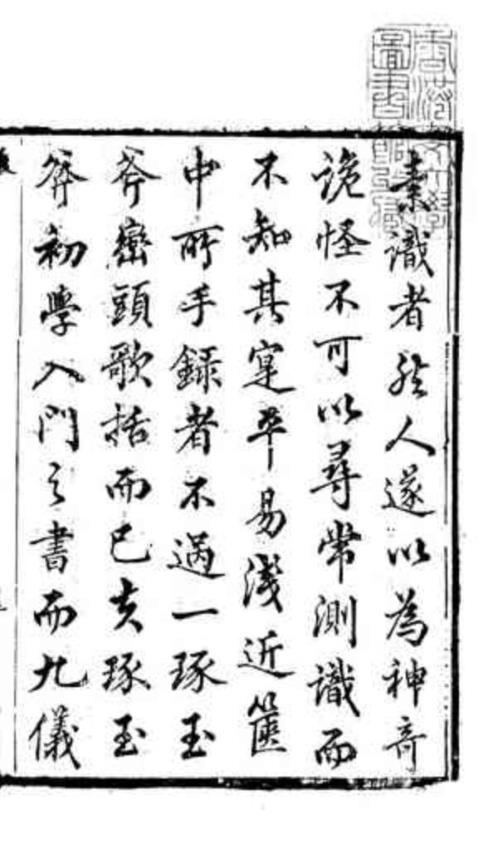 素識者然人遂以為神奇
詭怪不可以尋常測識而
不知其寔平易淺近篋
中所手錄者不過一琢玉
斧巒頭歌括而已夫琢玉
斧初學入門之書而九儀